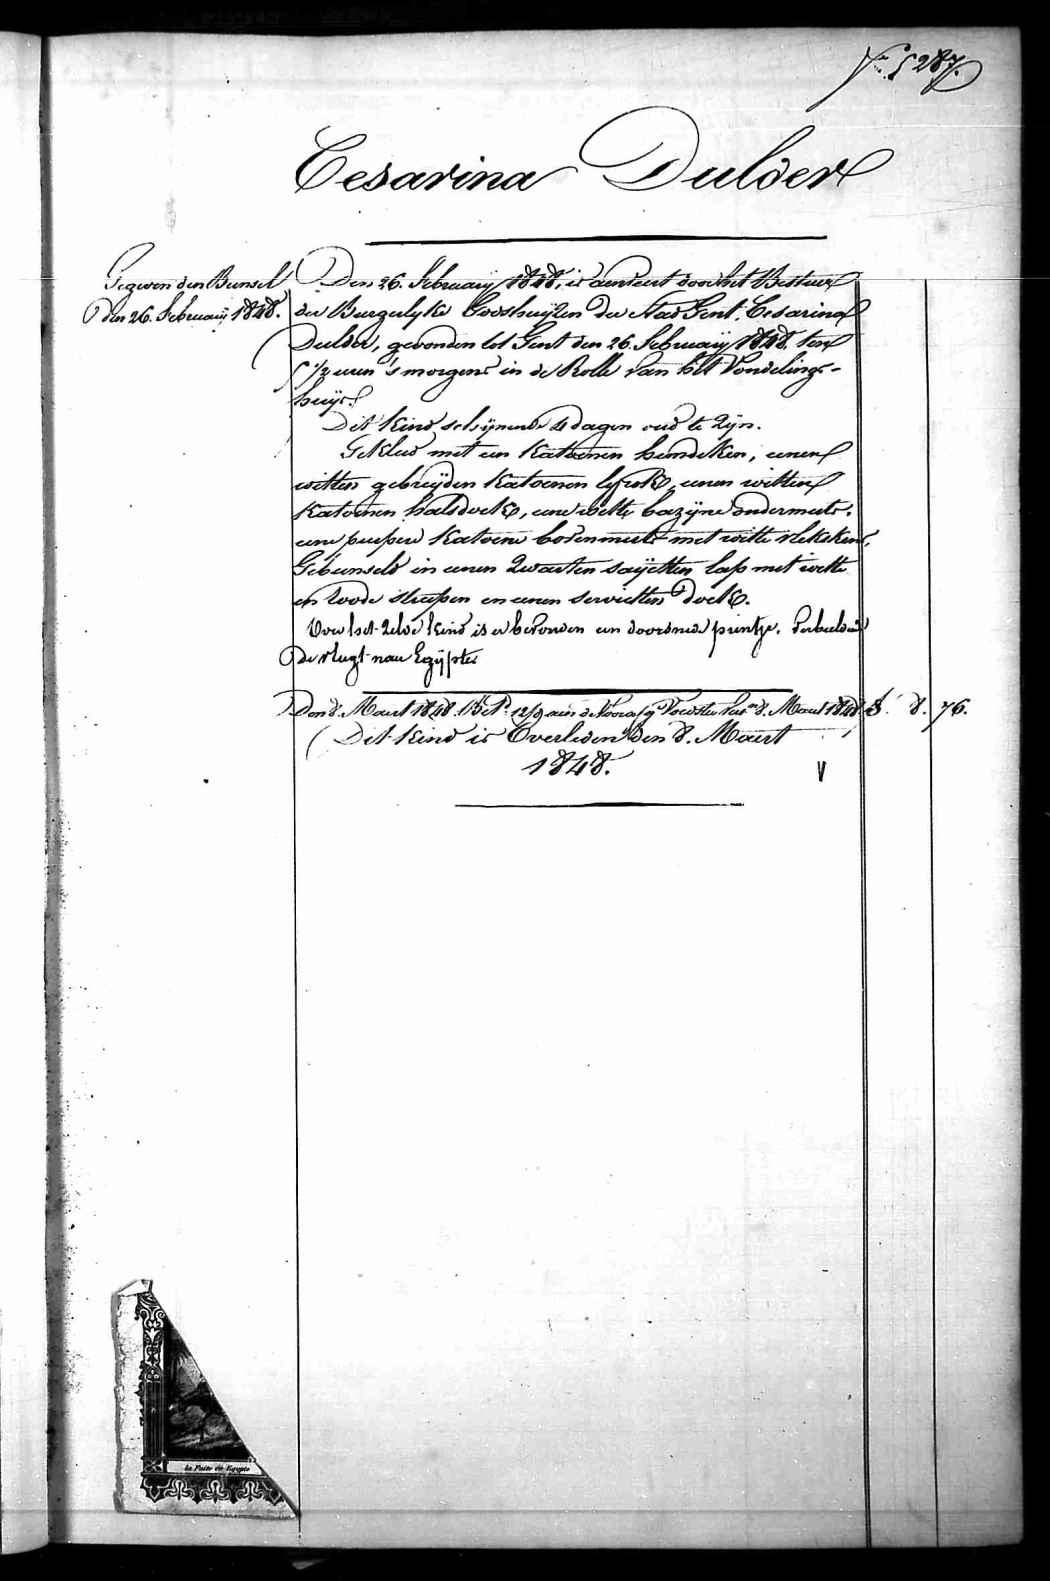 F.° 5287.
Cesarina Dulder
Gezwen den Bunsel
den 26. February 1848.
Den 26. February 1848, is aenveert door het Bestuer
der Burgerlyke Godshuyzen der Stad Gent, Cesarina
Dulder, gevonden tot Gent den 26. February 1848. ten
5 1/2 uren 's morgens in de Rolle van het Vondelings-
huys.
Dit kind schynende 4 dagen oud te zyn.
Gekleed met een Katoenen hemdeken, eenen
witten gebreyden Katoenen lyfrok, eenen witten
Katoenen halsdoek, eene witte bazyne ondermuts,
eene purpere Katoene bovenmuts met witte vlekskens,
Gebunseld in eenen Zwarten sayetten lap met witte
en roode streepen en eenen servietten doek.
Voor het zelve kind is er bevonden een doorsnede printje, verbeeldende
de vlugt naer Egypten
Den 8. Maert 1848. 12/9 aen de Voedster 8. Maert 1848. 8. 76.
Dit kind is Overleden den 8. Maert
1848.
V
la Fuite en Egypte